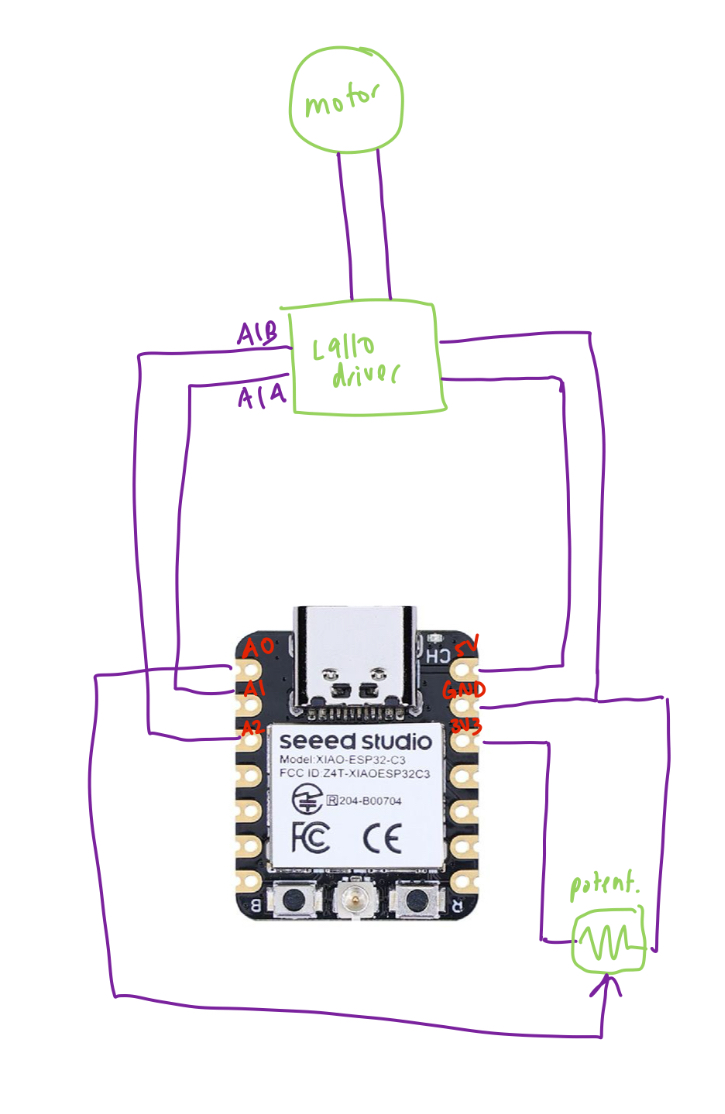 motor
A1B
L9110
driver
A1A
A0
CH
5V
A1
GND
A2
3V3
seeed studio
Model:XIAO-ESP32-C3
FCC ID:Z4T-XIAOESP32C3
R 204-B00704
FC CE
B
R
potent.